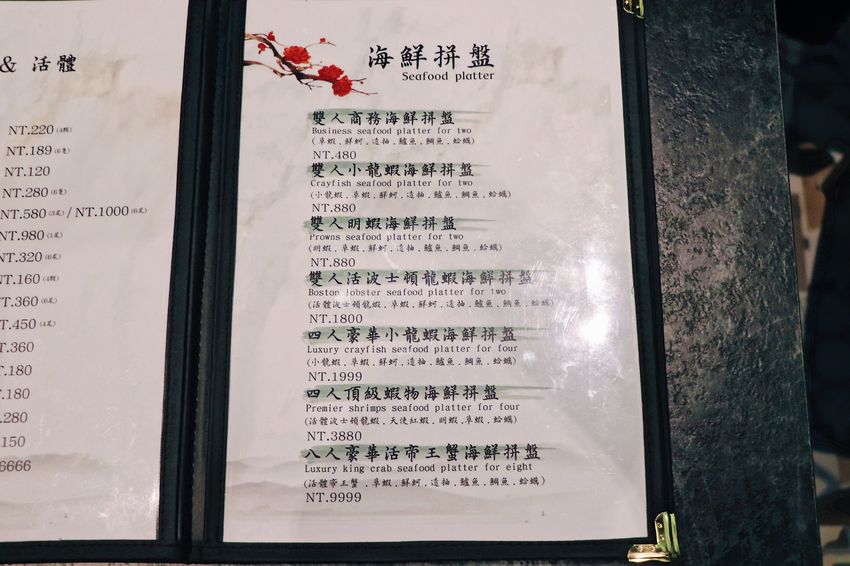 & 活體
NT.220 (4顆)
NT.189 (6隻)
NT.120
NT.280 (6隻)
NT.580 (3尾) / NT.1000 (6尾)
NT.980 (1尾)
NT.320 (6尾)
NT.160 (4顆)
NT.360 (6尾)
.450 (4尾)
.360
.180
.180
.280
.150
6666
海鮮拼盤
Seafood platter
雙人商務海鮮拼盤
Business seafood platter for two
(草蝦.鮮蚵.透抽.鱸魚.鯛魚.蛤蠣)
NT.480
雙人小龍蝦海鮮拼盤
Crayfish seafood platter for two
(小龍蝦.草蝦.鮮蚵.透抽.鱸魚.鯛魚.蛤蠣)
NT.880
雙人明蝦海鮮拼盤
Prowns seafood platter for two
(明蝦.草蝦.鮮蚵.透抽.鱸魚.鯛魚.蛤蠣)
NT.880
雙人活波士頓龍蝦海鮮拼盤
Boston lobster seafood platter for two
(活體波士頓龍蝦.草蝦.鮮蚵.透抽.鱸魚.鯛魚.蛤蠣)
NT.1800
四人豪華小龍蝦海鮮拼盤
Luxury crayfish seafood platter for four
(小龍蝦.草蝦.鮮蚵.透抽.鱸魚.鯛魚.蛤蠣)
NT.1999
四人頂級蝦物海鮮拼盤
Premier shrimps seafood platter for four
(活體波士頓龍蝦.天使紅蝦.明蝦.草蝦.蛤蠣)
NT.3880
八人豪華活帝王蟹海鮮拼盤
Luxury king crab seafood platter for eight
(活體帝王蟹.草蝦.鮮蚵.透抽.鱸魚.鯛魚.蛤蠣)
NT.9999